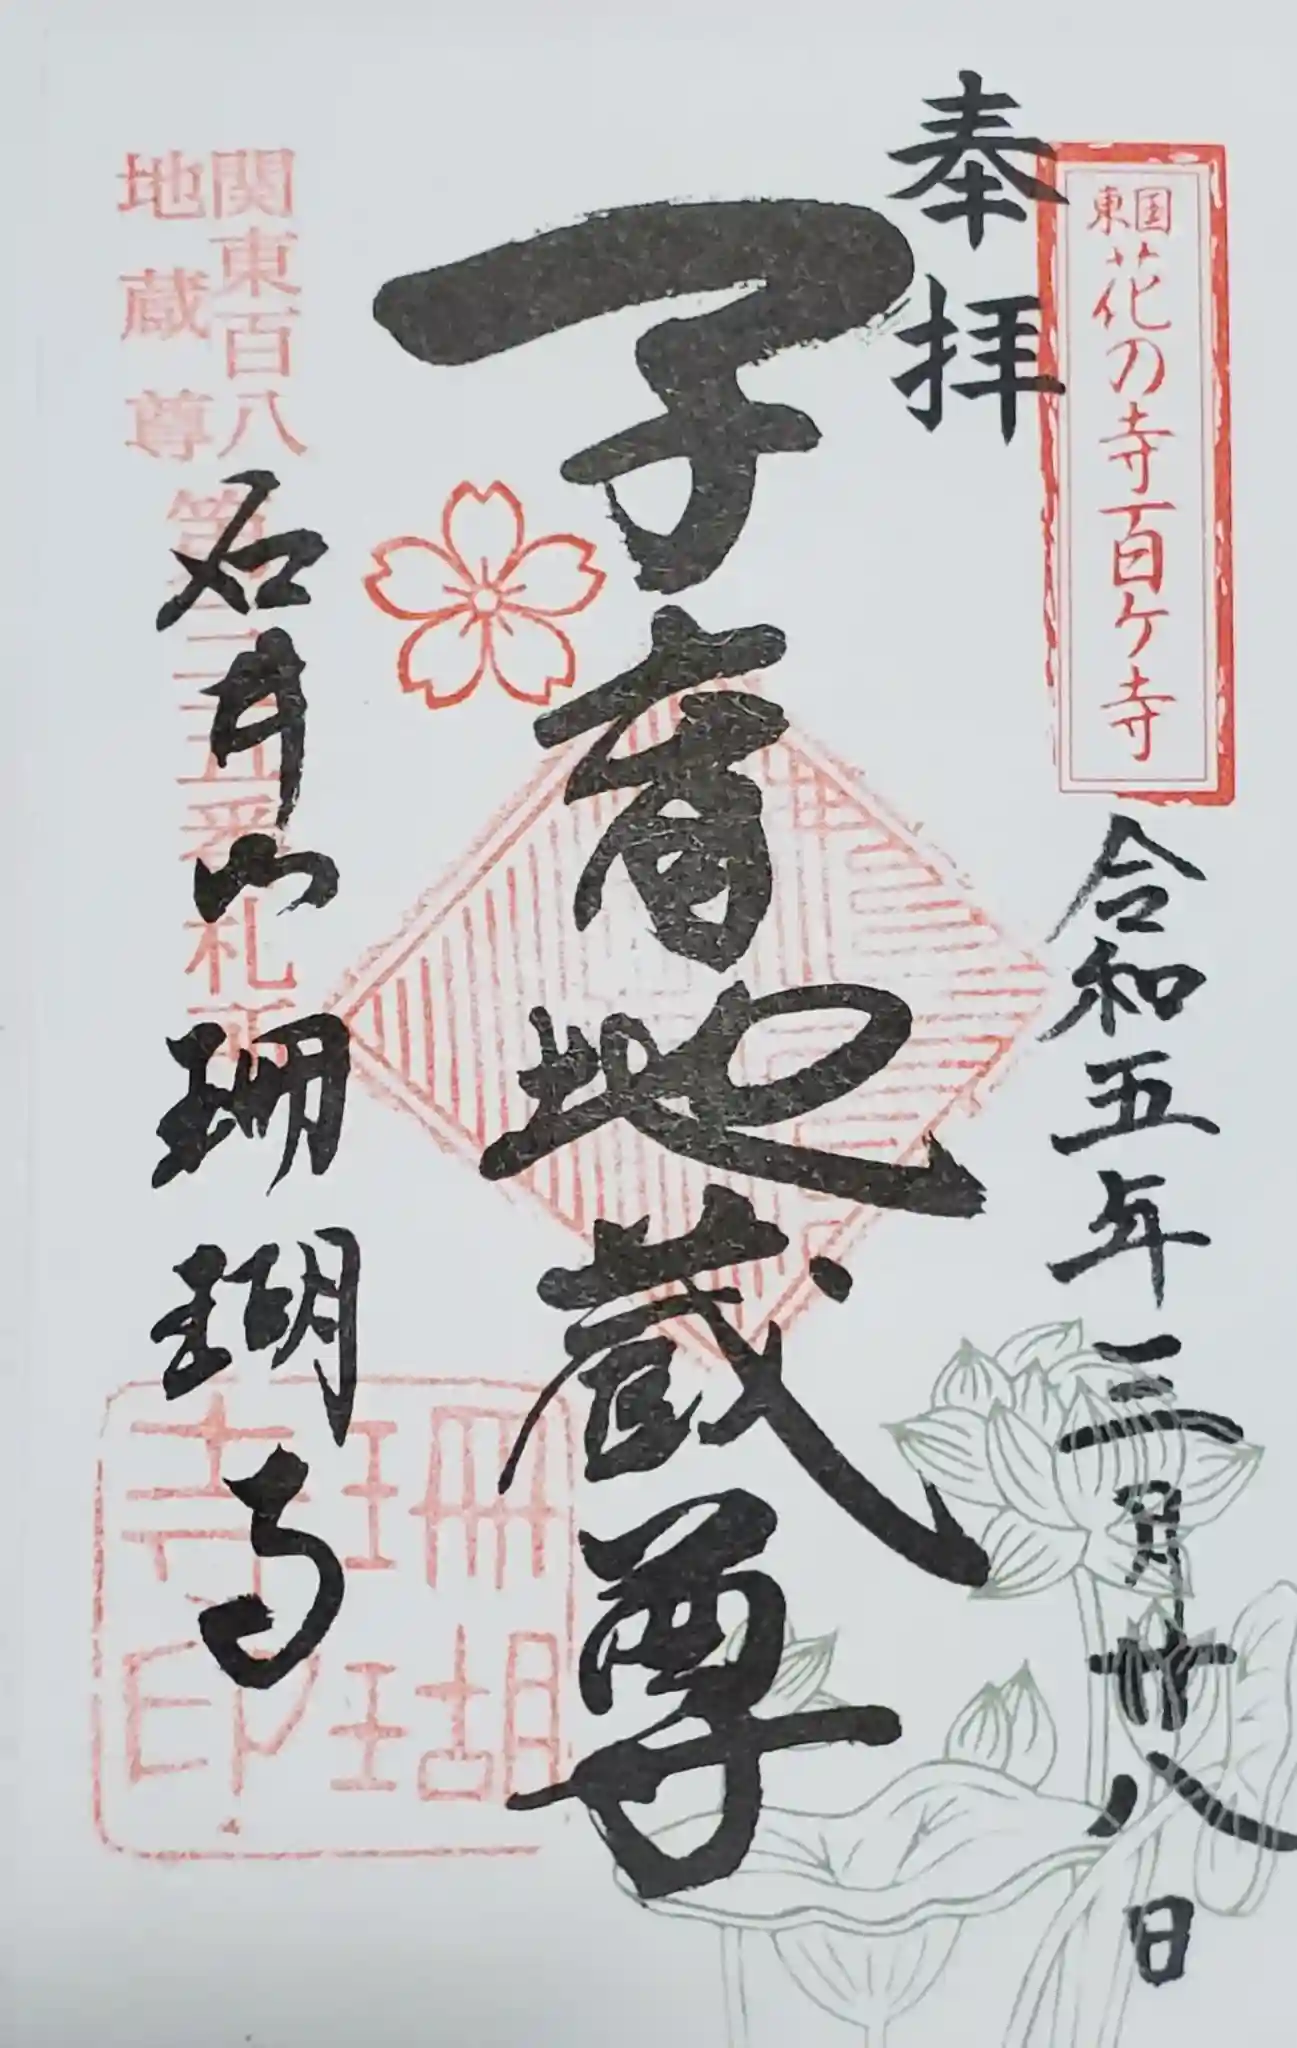 東国花の寺百ケ寺
奉拝
令和五年三月廿八日
子育地蔵尊
関東百八
地蔵尊
五番札所
石井山 珊瑚寺
珊瑚
寺印